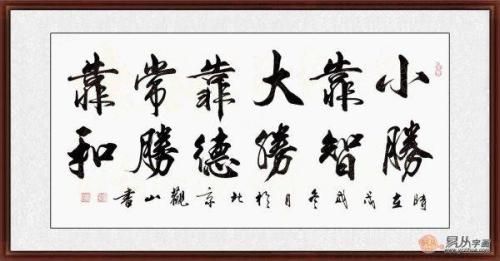 小勝
靠智
大勝
靠德
常勝
靠和
時在戊戌冬月於北京觀山書
易从字画